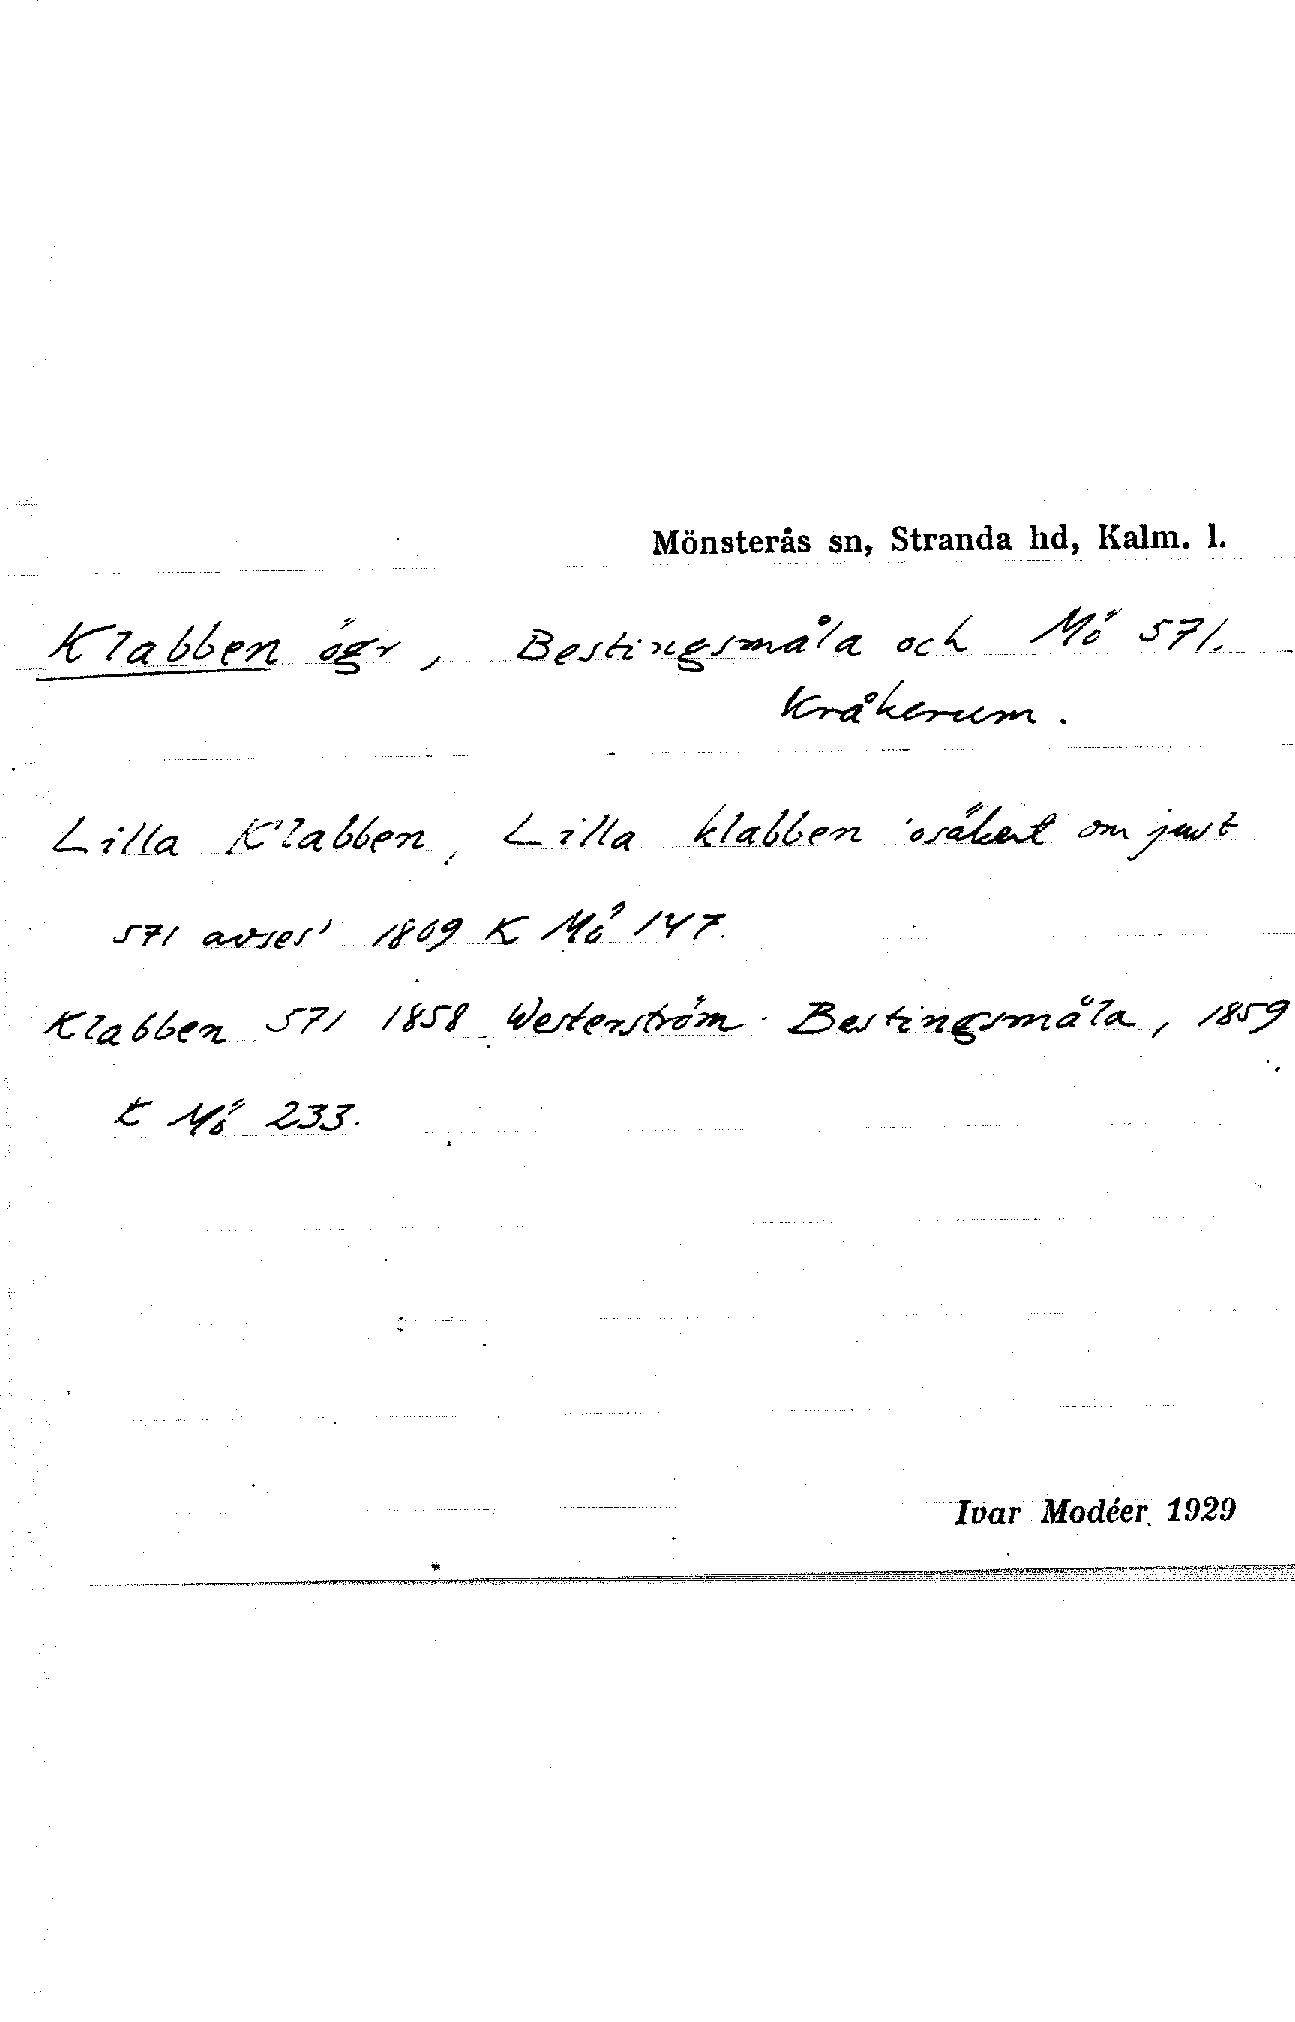 Mönsterås sn, Stranda hd, Kalm. l.
Klabben ögr, Bestingsmåla och Mö 571.
Kråkerum.
Lilla Klabben, Lilla klabben 'osäkert om just
571 avses' 1809 K Mö 147.
Klabben 571 1858 Westerström Bestingsmåla, 1859
K Mö 233.
Ivar Modéer 1929